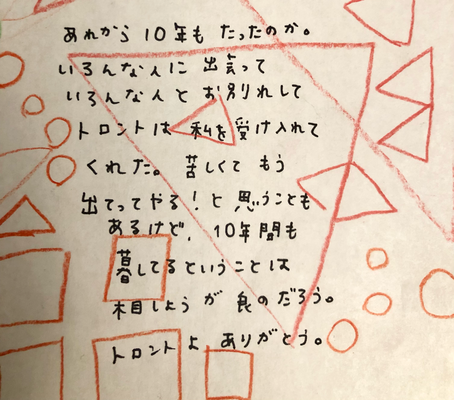 あれから10年もたったのか。
いろんな人に出会って
いろんな人とお別れして
トロントは私を受け入れて
くれた。苦しくてもう
出てってやる！と思うことも
あるけど、10年間も
暮してるということは
相しょうが良のだろう。
トロントよ、ありがとう。